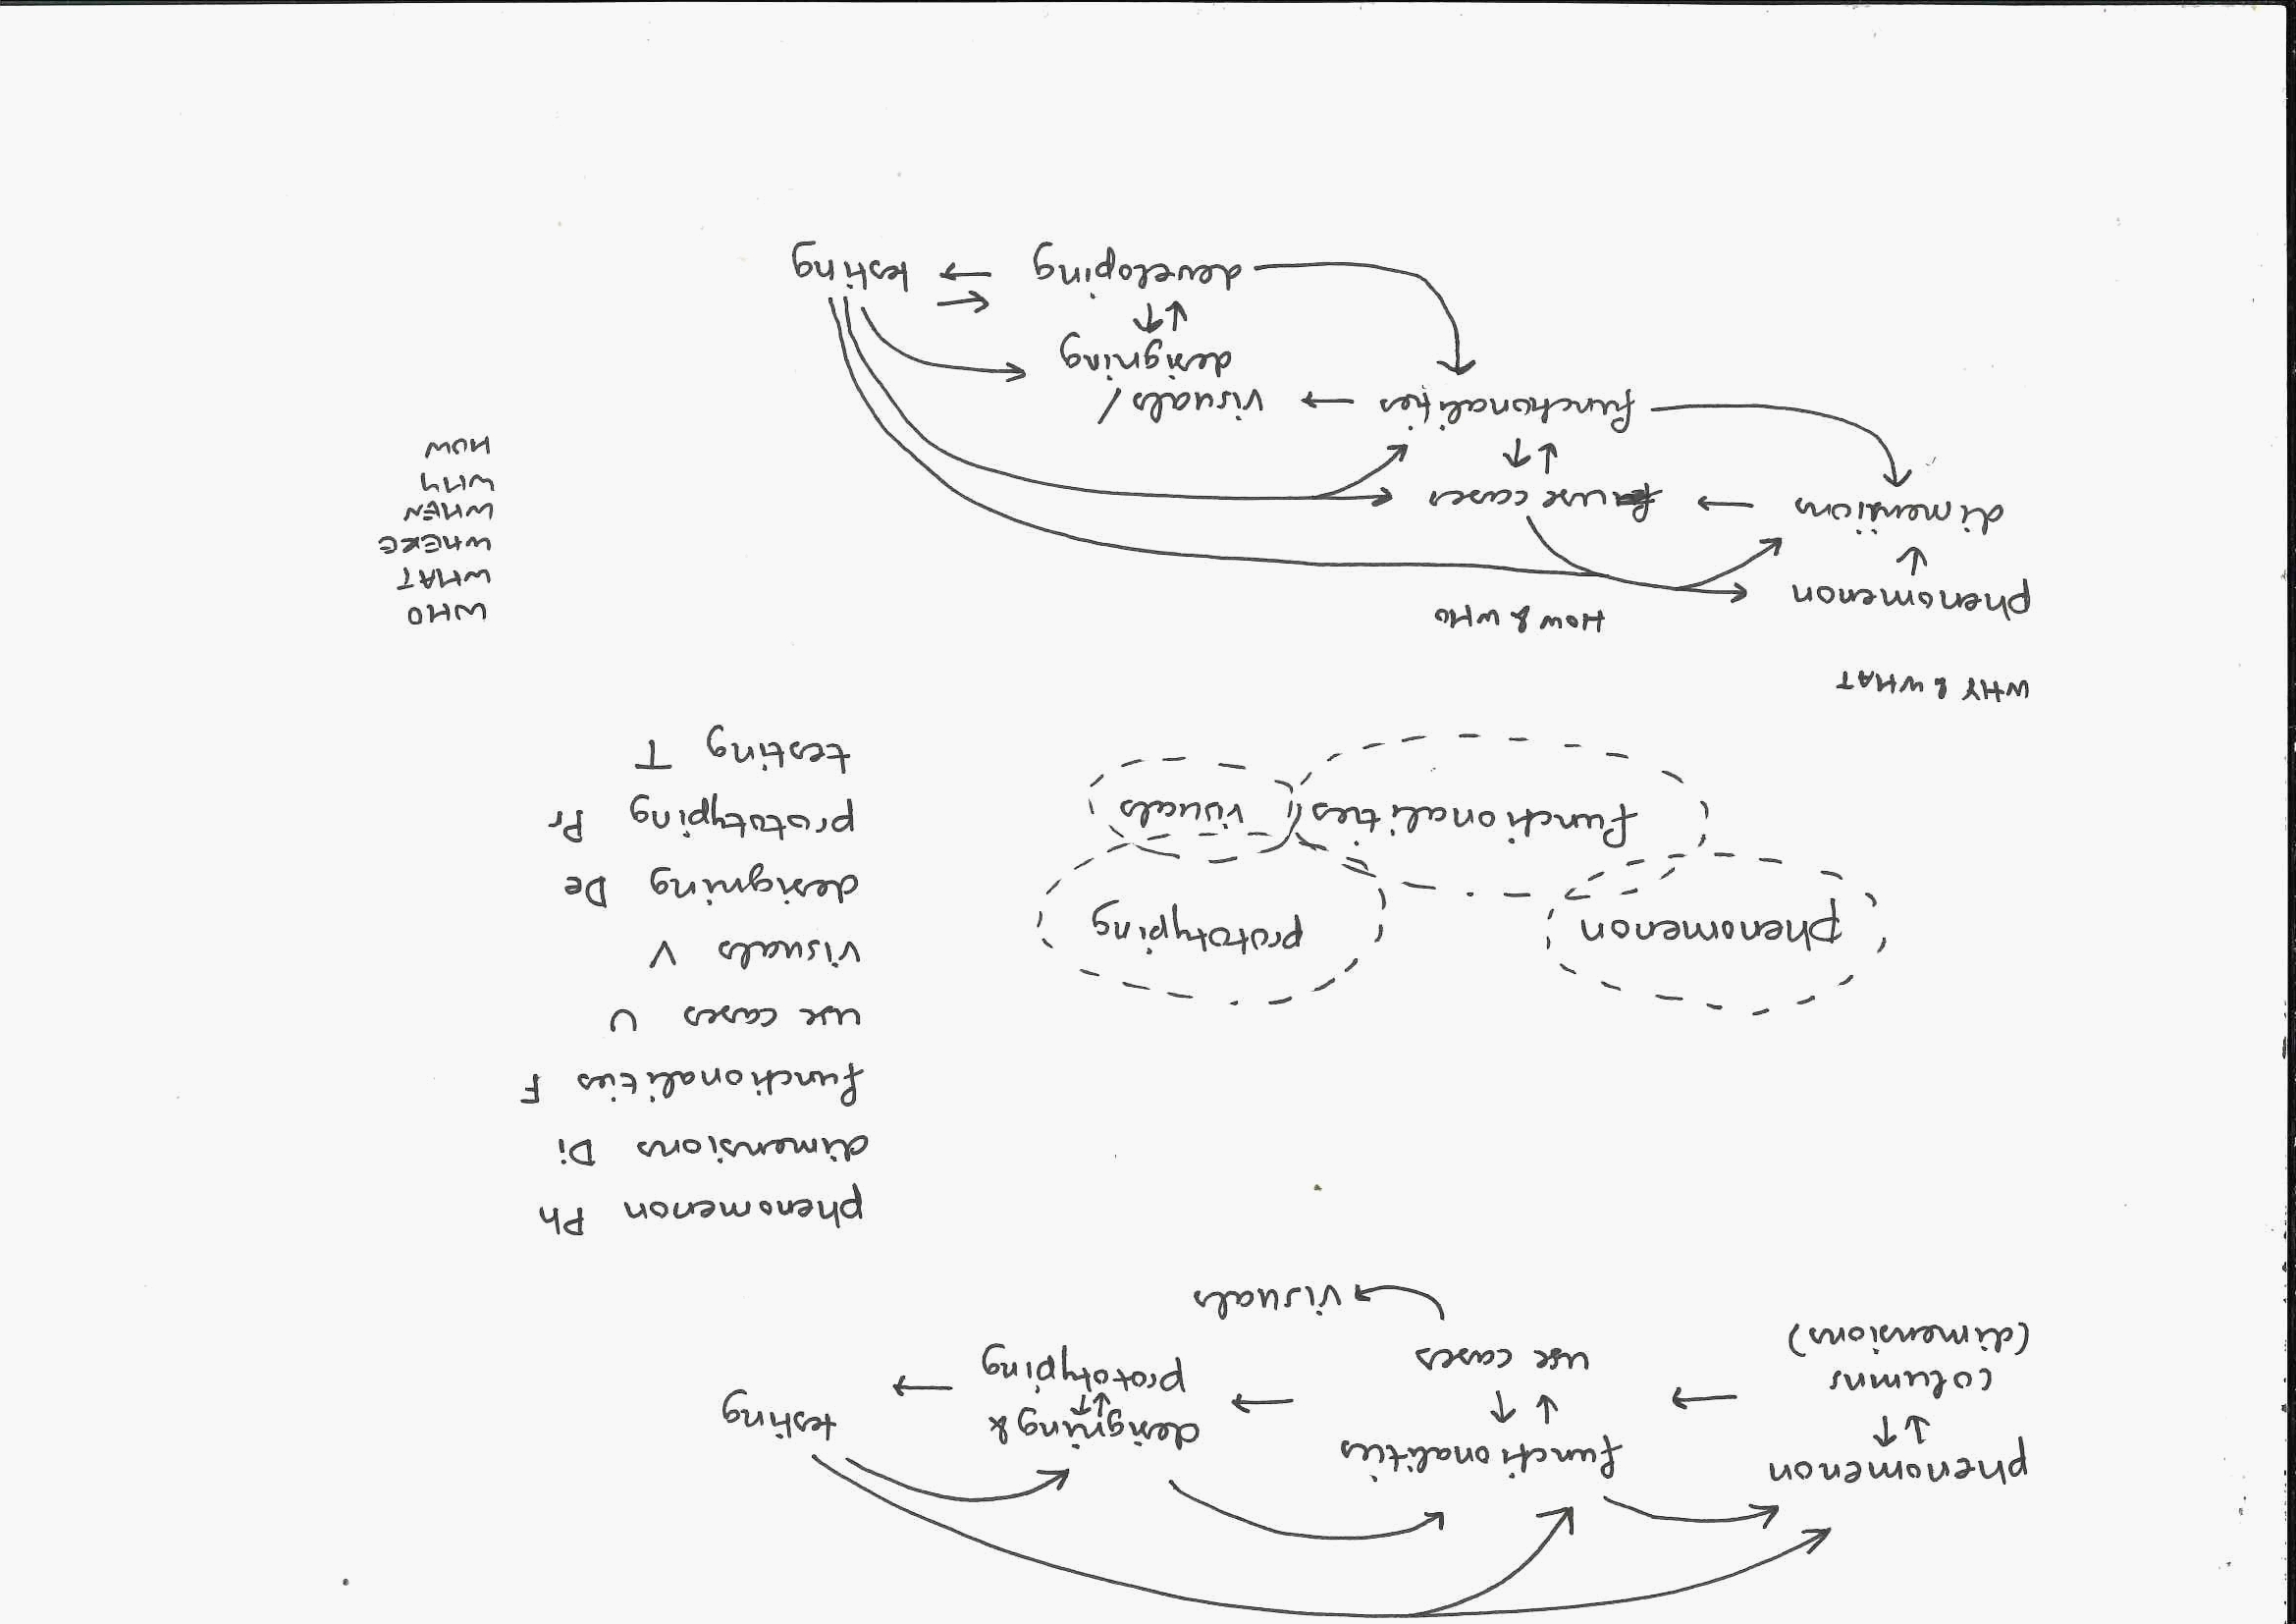 phenomenon
columns
(dimensions)
functionalities
use cases
visuals
designing &
prototyping
testing
phenomenon Ph
dimensions Di
functionalities F
use cases U
visuals V
designing De
prototyping Pr
testing T
phenomenon
prototyping
functionalities
visuals
WHY & WHAT
HOW & WHO
phenomenon
dimensions
use cases
functionalities
visuals/
designing
developing
testing
WHO
WHAT
WHERE
WHEN
WHY
HOW